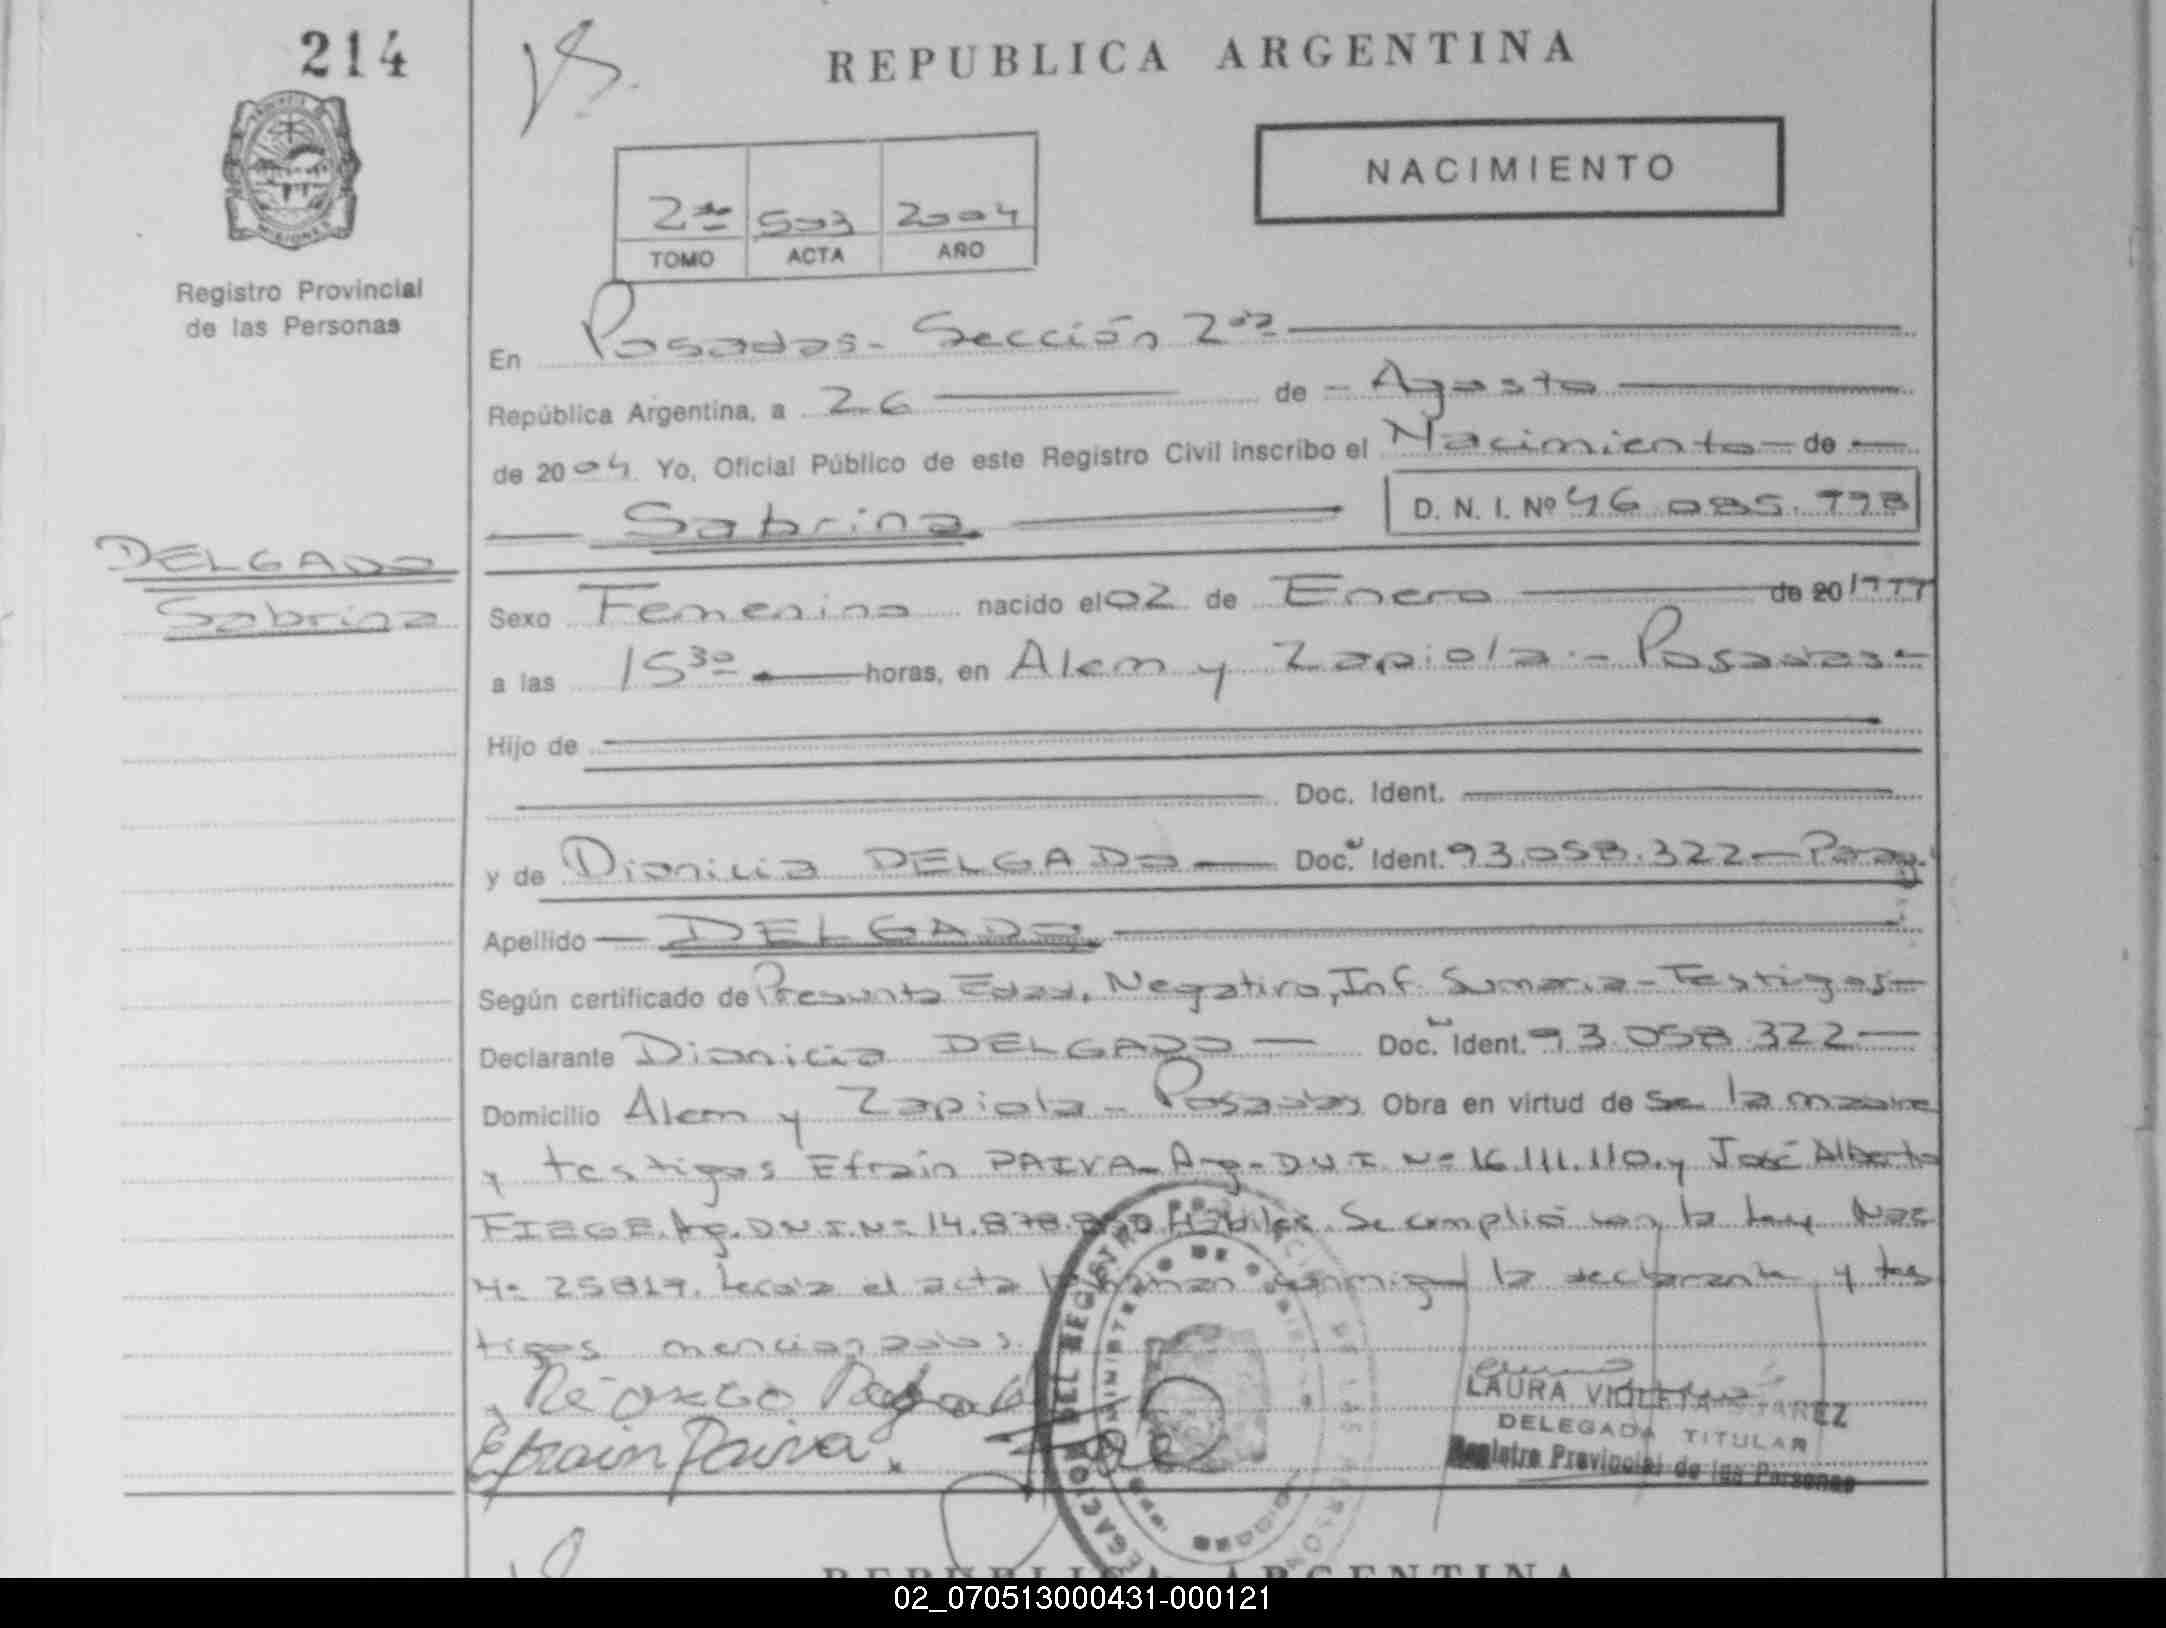 214
REPUBLICA ARGENTINA
NACIMIENTO
2do 503 2004
TOMO ACTA AÑO
Registro Provincial
de las Personas
En Posadas - Sección 2da
República Argentina, a 26 de - Agosto
de 2004 Yo, Oficial Público de este Registro Civil inscribo el Nacimiento de
Sabrina
D. N. I. Nº 46.085.998
DELGADO
Sabrina
Sexo Femenino nacido el 02 de Enero de 20 1999
a las 15 30 horas, en Alem y Zapiola - Posadas -
Hijo de
Doc. Ident.
y de Dionicia DELGADO Doc. Ident. 93.058.322 - Parag.
Apellido DELGADO
Según certificado de Presunta Edad, Negativo, Inf. Sumaria - Testigos -
Declarante Dionicia DELGADO Doc. Ident. 93.058.322
Domicilio Alem y Zapiola - Posadas Obra en virtud de ser la madre
y testigos Efraín PAIVA - Arg - D.N.I. Nº 16.111.110. y José Alberto
FIEGE. Arg. D.N.I. Nº 14.878. Hábiles. Se cumplió con la Ley Nac
Nº 25819. Leída el acta la firman conmigo la declarante y tes
tigos mencionados.
Efrain Paiva.
LAURA VIOLETA SUAREZ
DELEGADA TITULAR
Registro Provincial de las Personas
REPUBLICA ARGENTINA
02_070513000431-000121